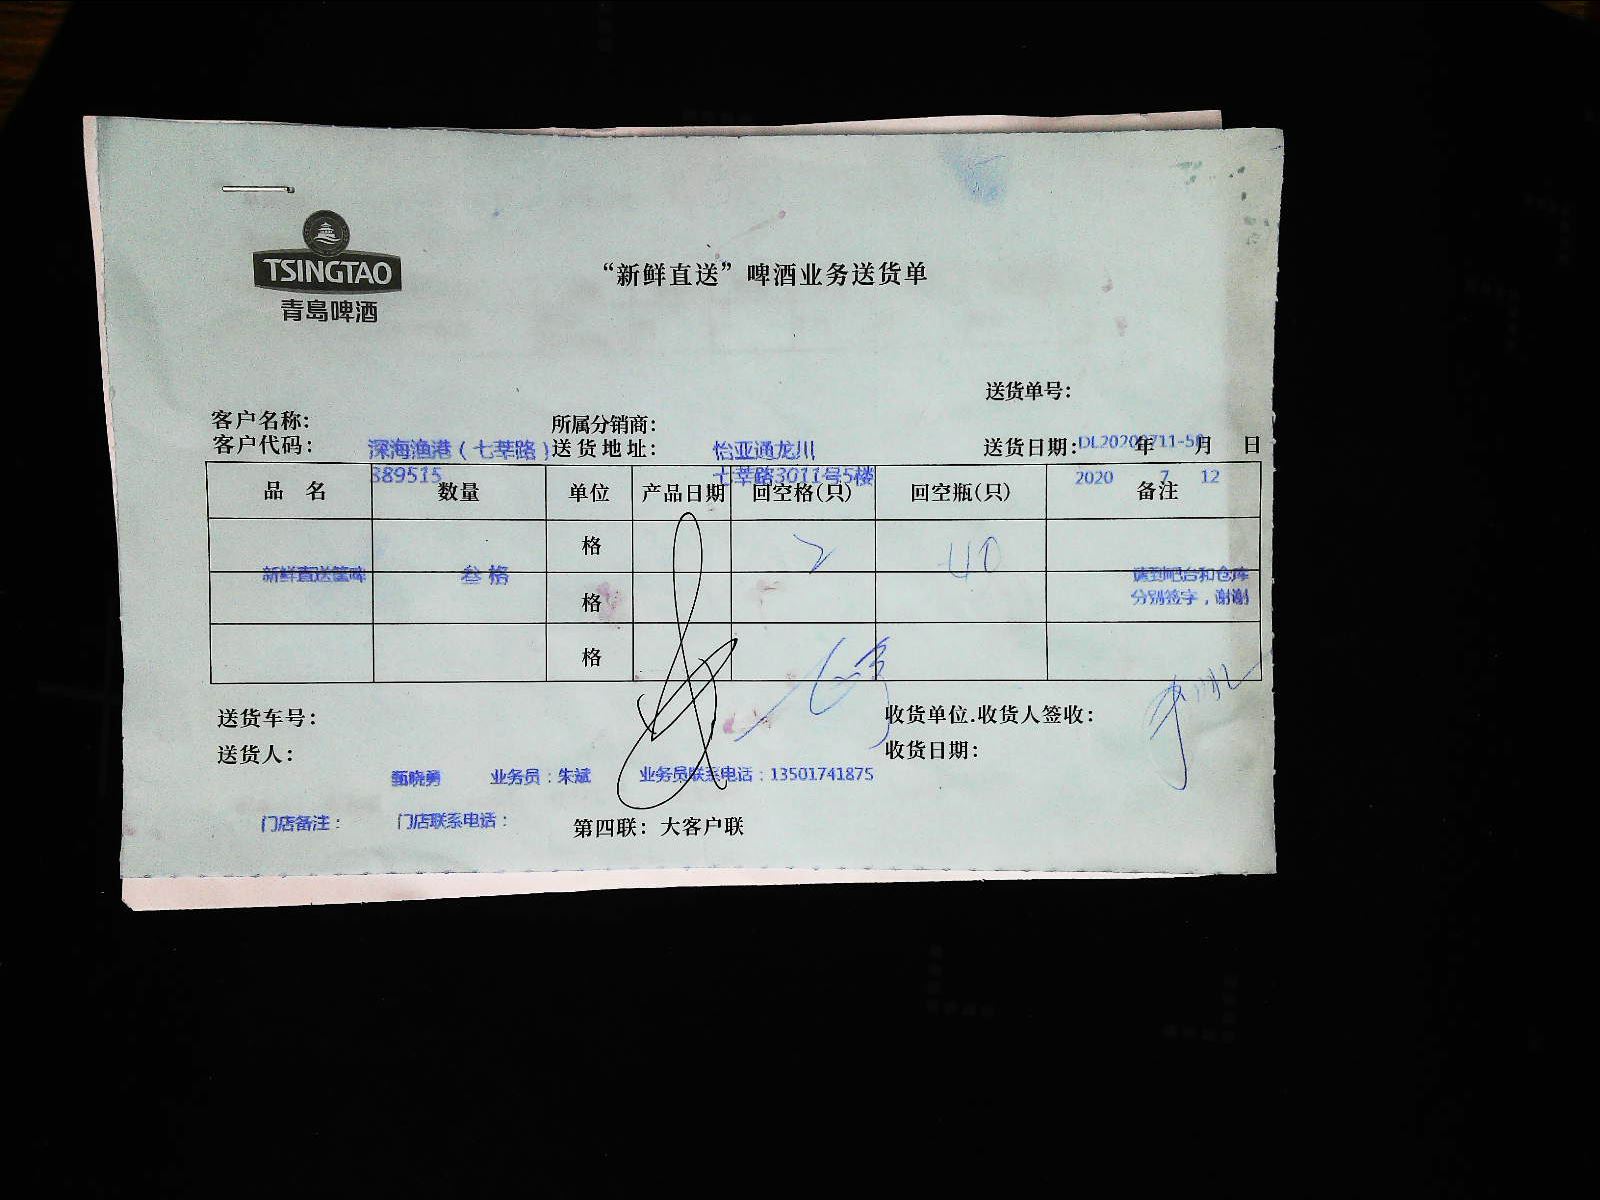 TSINGTAO
青岛啤酒
“新鲜直送”啤酒业务送货单
送货单号：
客户名称： 所属分销商：
客户代码： 深海渔港（七莘路） 送货地址： 怡亚通龙川 送货日期： DL20200711-50 年 月 日
389515 七莘路3011号5楼 2020 7 12
品 名 数量 单位 产品日期 回空格(只) 回空瓶(只) 备注
格 2 40
新鲜直送筐啤 叁格 请到吧台和仓库
格 分别签字，谢谢
格
送货车号： 收货单位.收货人签收：
送货人： 收货日期：
甄晓勇 业务员：朱斌 业务员联系电话：13501741875
门店备注： 门店联系电话：
第四联：大客户联